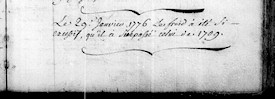 Le 29 Janvier 1776 Le froid a été Si
excessif, qu'il a Surpassé celui de 1709.